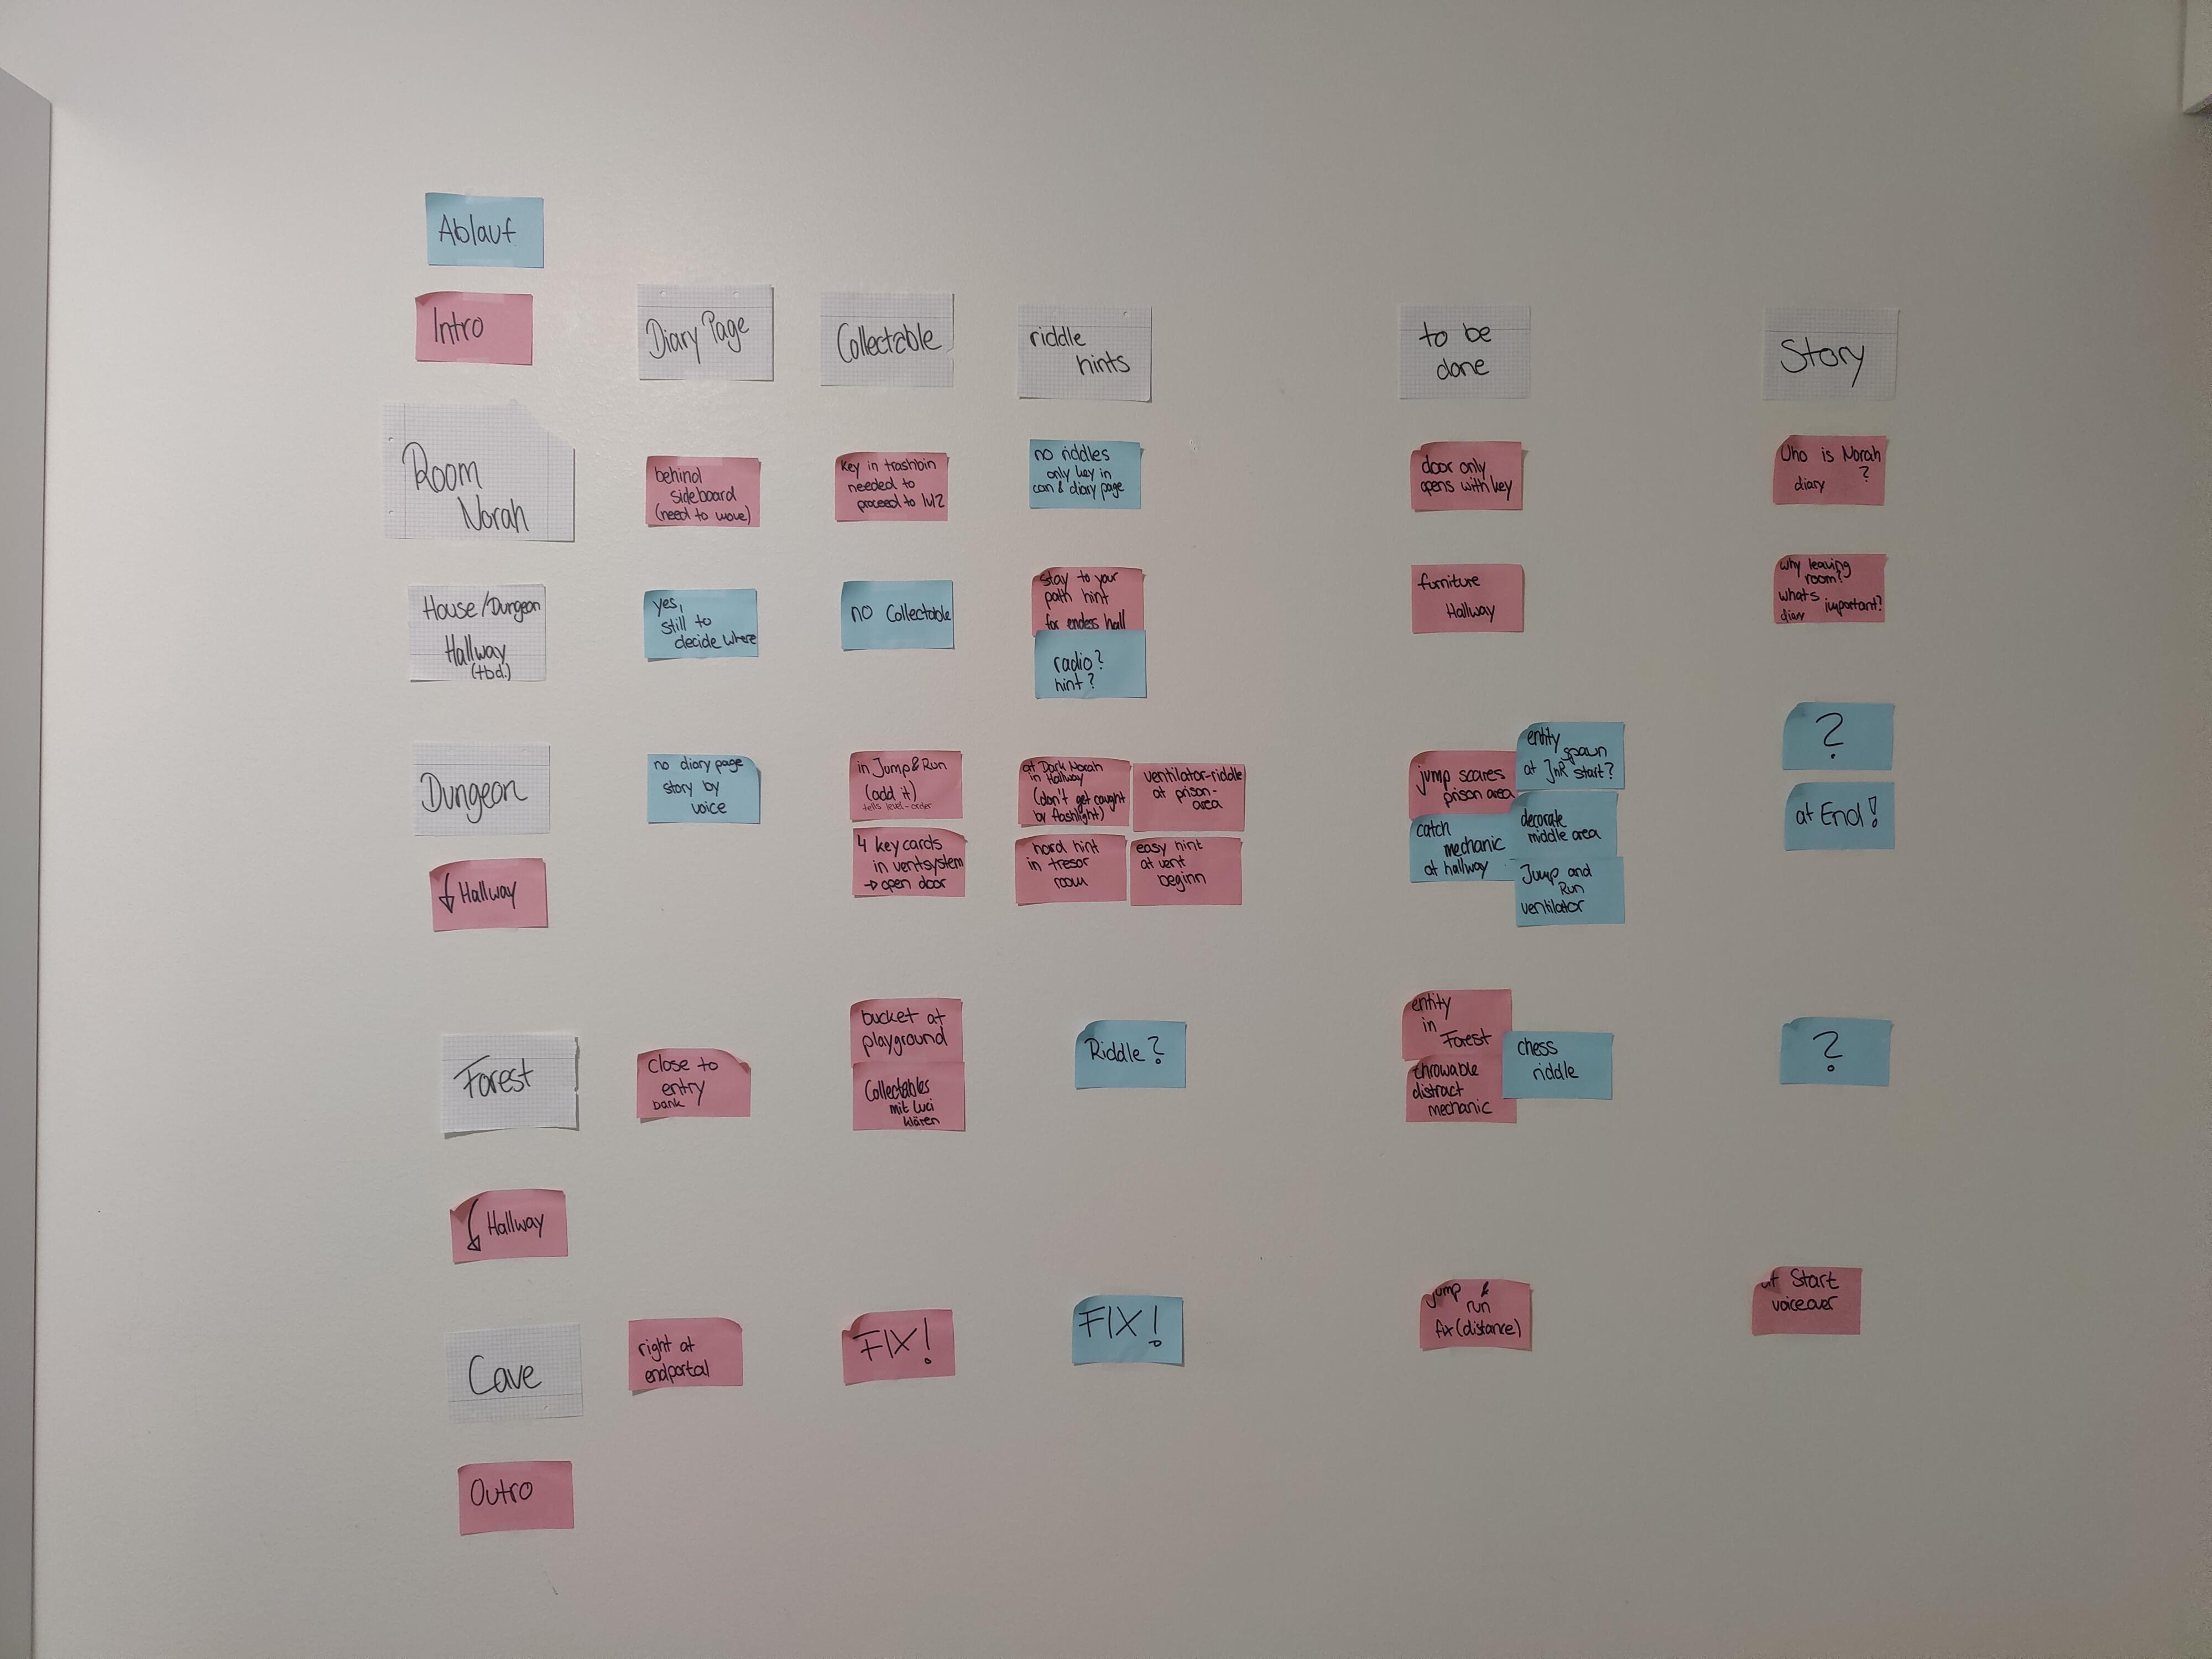 Ablauf
Intro
Diary Page
Collectable
riddle
hints
to be
done
Story
Room
Norah
behind
sideboard
(need to move)
key in trashbin
needed to
proceed to lvl2
no riddles
only key in
can & diary page
door only
opens with key
Who is Norah
?
diary
House/Dungeon
Hallway
(tbd.)
yes,
still to
decide where
no Collectable
stay to your
path hint
for endess hall
radio?
hint?
furniture
Hallway
why leaving
room?
whats
important?
diary
Dungeon
no diary page
story by
voice
in Jump&Run
(add it)
tells level-order
4 key cards
in ventsystem
→ open door
at Dark Norah
in Hallway
(don't get caught
by flashlight)
ventilator-riddle
at prison-
area
hard hint
in tresor
room
easy hint
at vent
beginn
jump scares
prison area
entity
spawn
at JnR start?
catch
mechanic
at hallway
decorate
middle area
Jump and
Run
ventilator
?
at End!
↓ Hallway
Forest
close to
entry
bank
bucket at
playground
Collectables
mit Luci
klären
Riddle?
entity
in
Forest
throwable
distract
mechanic
chess
riddle
?
↓ Hallway
Cave
right at
endportal
FIX!
FIX!
jump &
run
fix (distance)
at Start
voiceover
Outro